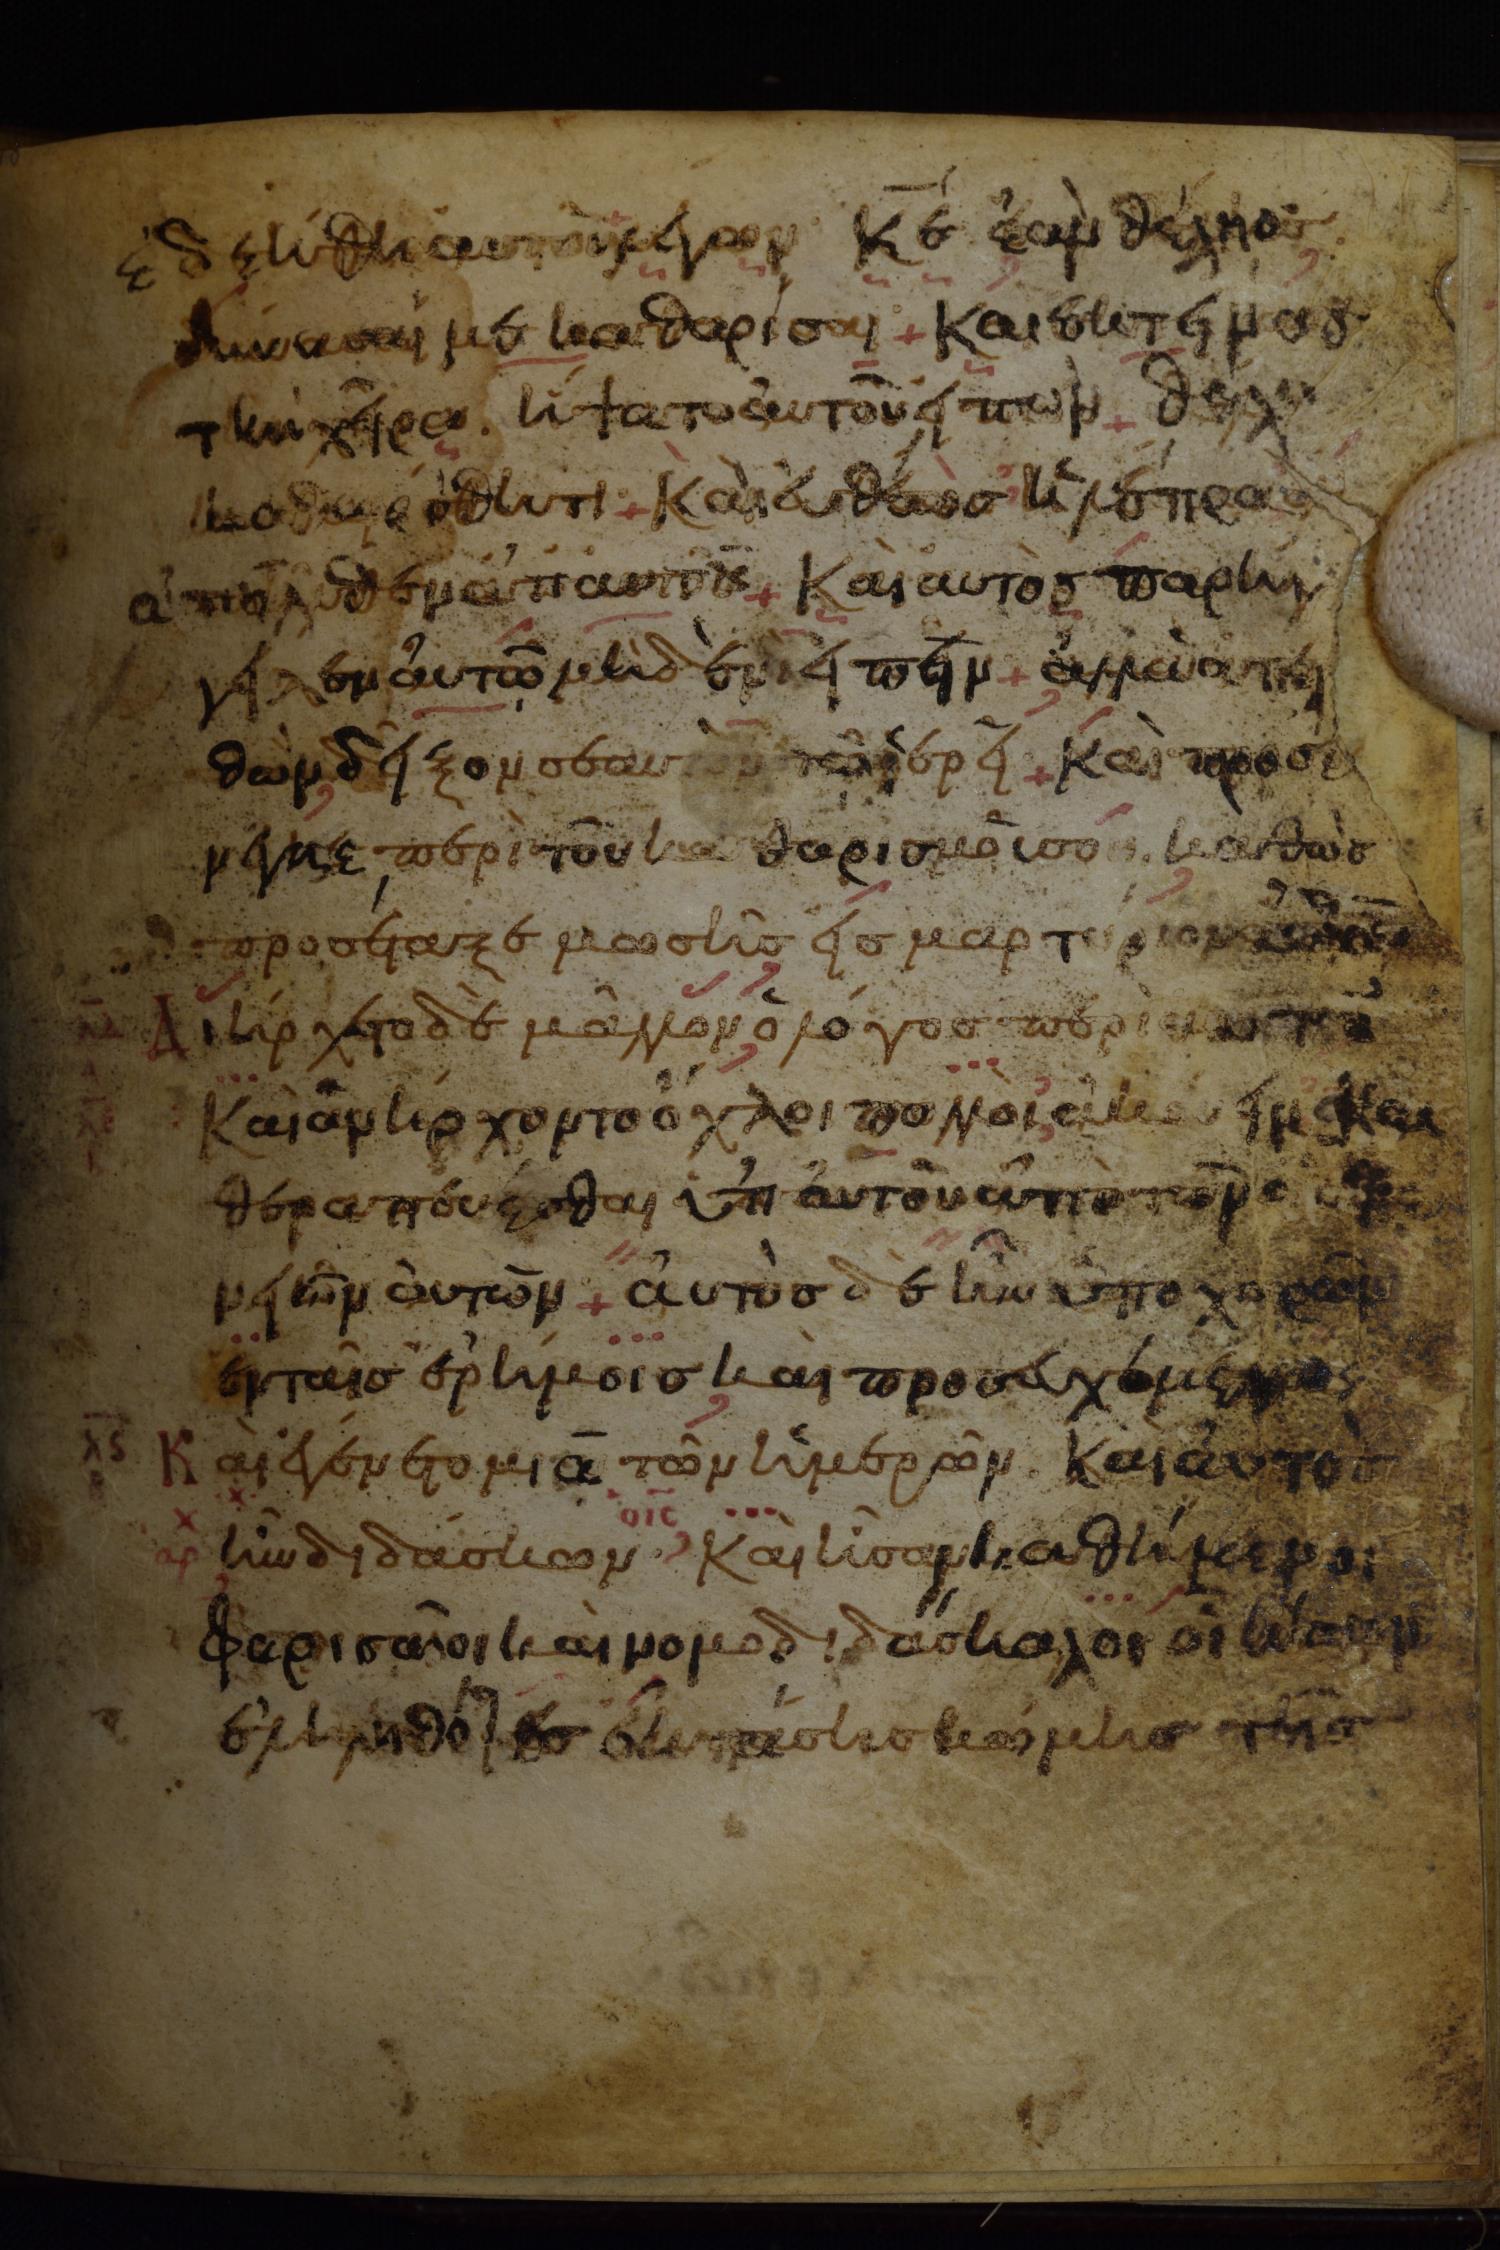 ἐδεήθη αυτοῦ λέγων· Κε ἐὰν θέλησ
δύνασαί με καθαρίσαι + Και εκτείνασ
τὴν χεῖρα. ἥψατο ἀυτοῦ ἐιπὼν + θέλω
καθαρίσθητι + Καὶ ἐυθέωσ ἡ λέπρα
ἀπῆλθεν ἀπ αυτοῦ + Καὶ αυτὸσ παρήγ
γειλεν ἀυτῶ μηδενὶ ἐιπεῖν + ἀλλὰ ἀπελ
θὼν δεῖξον σεαυτὸν τῶ ἱερεῖ + Καὶ προσέ
νεγκε περὶ τοῦ καθαρισμοῦ σου, καθὼσ
προσέταξε μωσῆσ εἰσ μαρτύριον ἀυτοῖσ
λδ Διήρχετο δὲ μᾶλλον ὁ λόγοσ περὶ αυτοῦ
λε Καὶ συνήρχοντο ὄχλοι πολλοὶ ἀκούειν Και
θεραπεύεσθαι ὑπ ἀυτοῦ ἀπὸ τῶν ἀσθε
νειῶν ἀυτῶν + ἀυτὸσ δὲ ἦν ὑποχωρῶν
εν ταῖσ ἐρήμοισ καὶ προσευχόμενοσ
λϛ Καὶ ἐγένετο μιᾶ τῶν ἡμερῶν. Και ἀυτὸσ
αρ ἦν διδάσκων· Καὶ ἦσαν καθήμενοι
φαρισαῖοι καὶ νομοδιδάσκαλοι οἳ ἦσαν
ἐληλυθότεσ εκ πάσησ κώμησ τῆσ